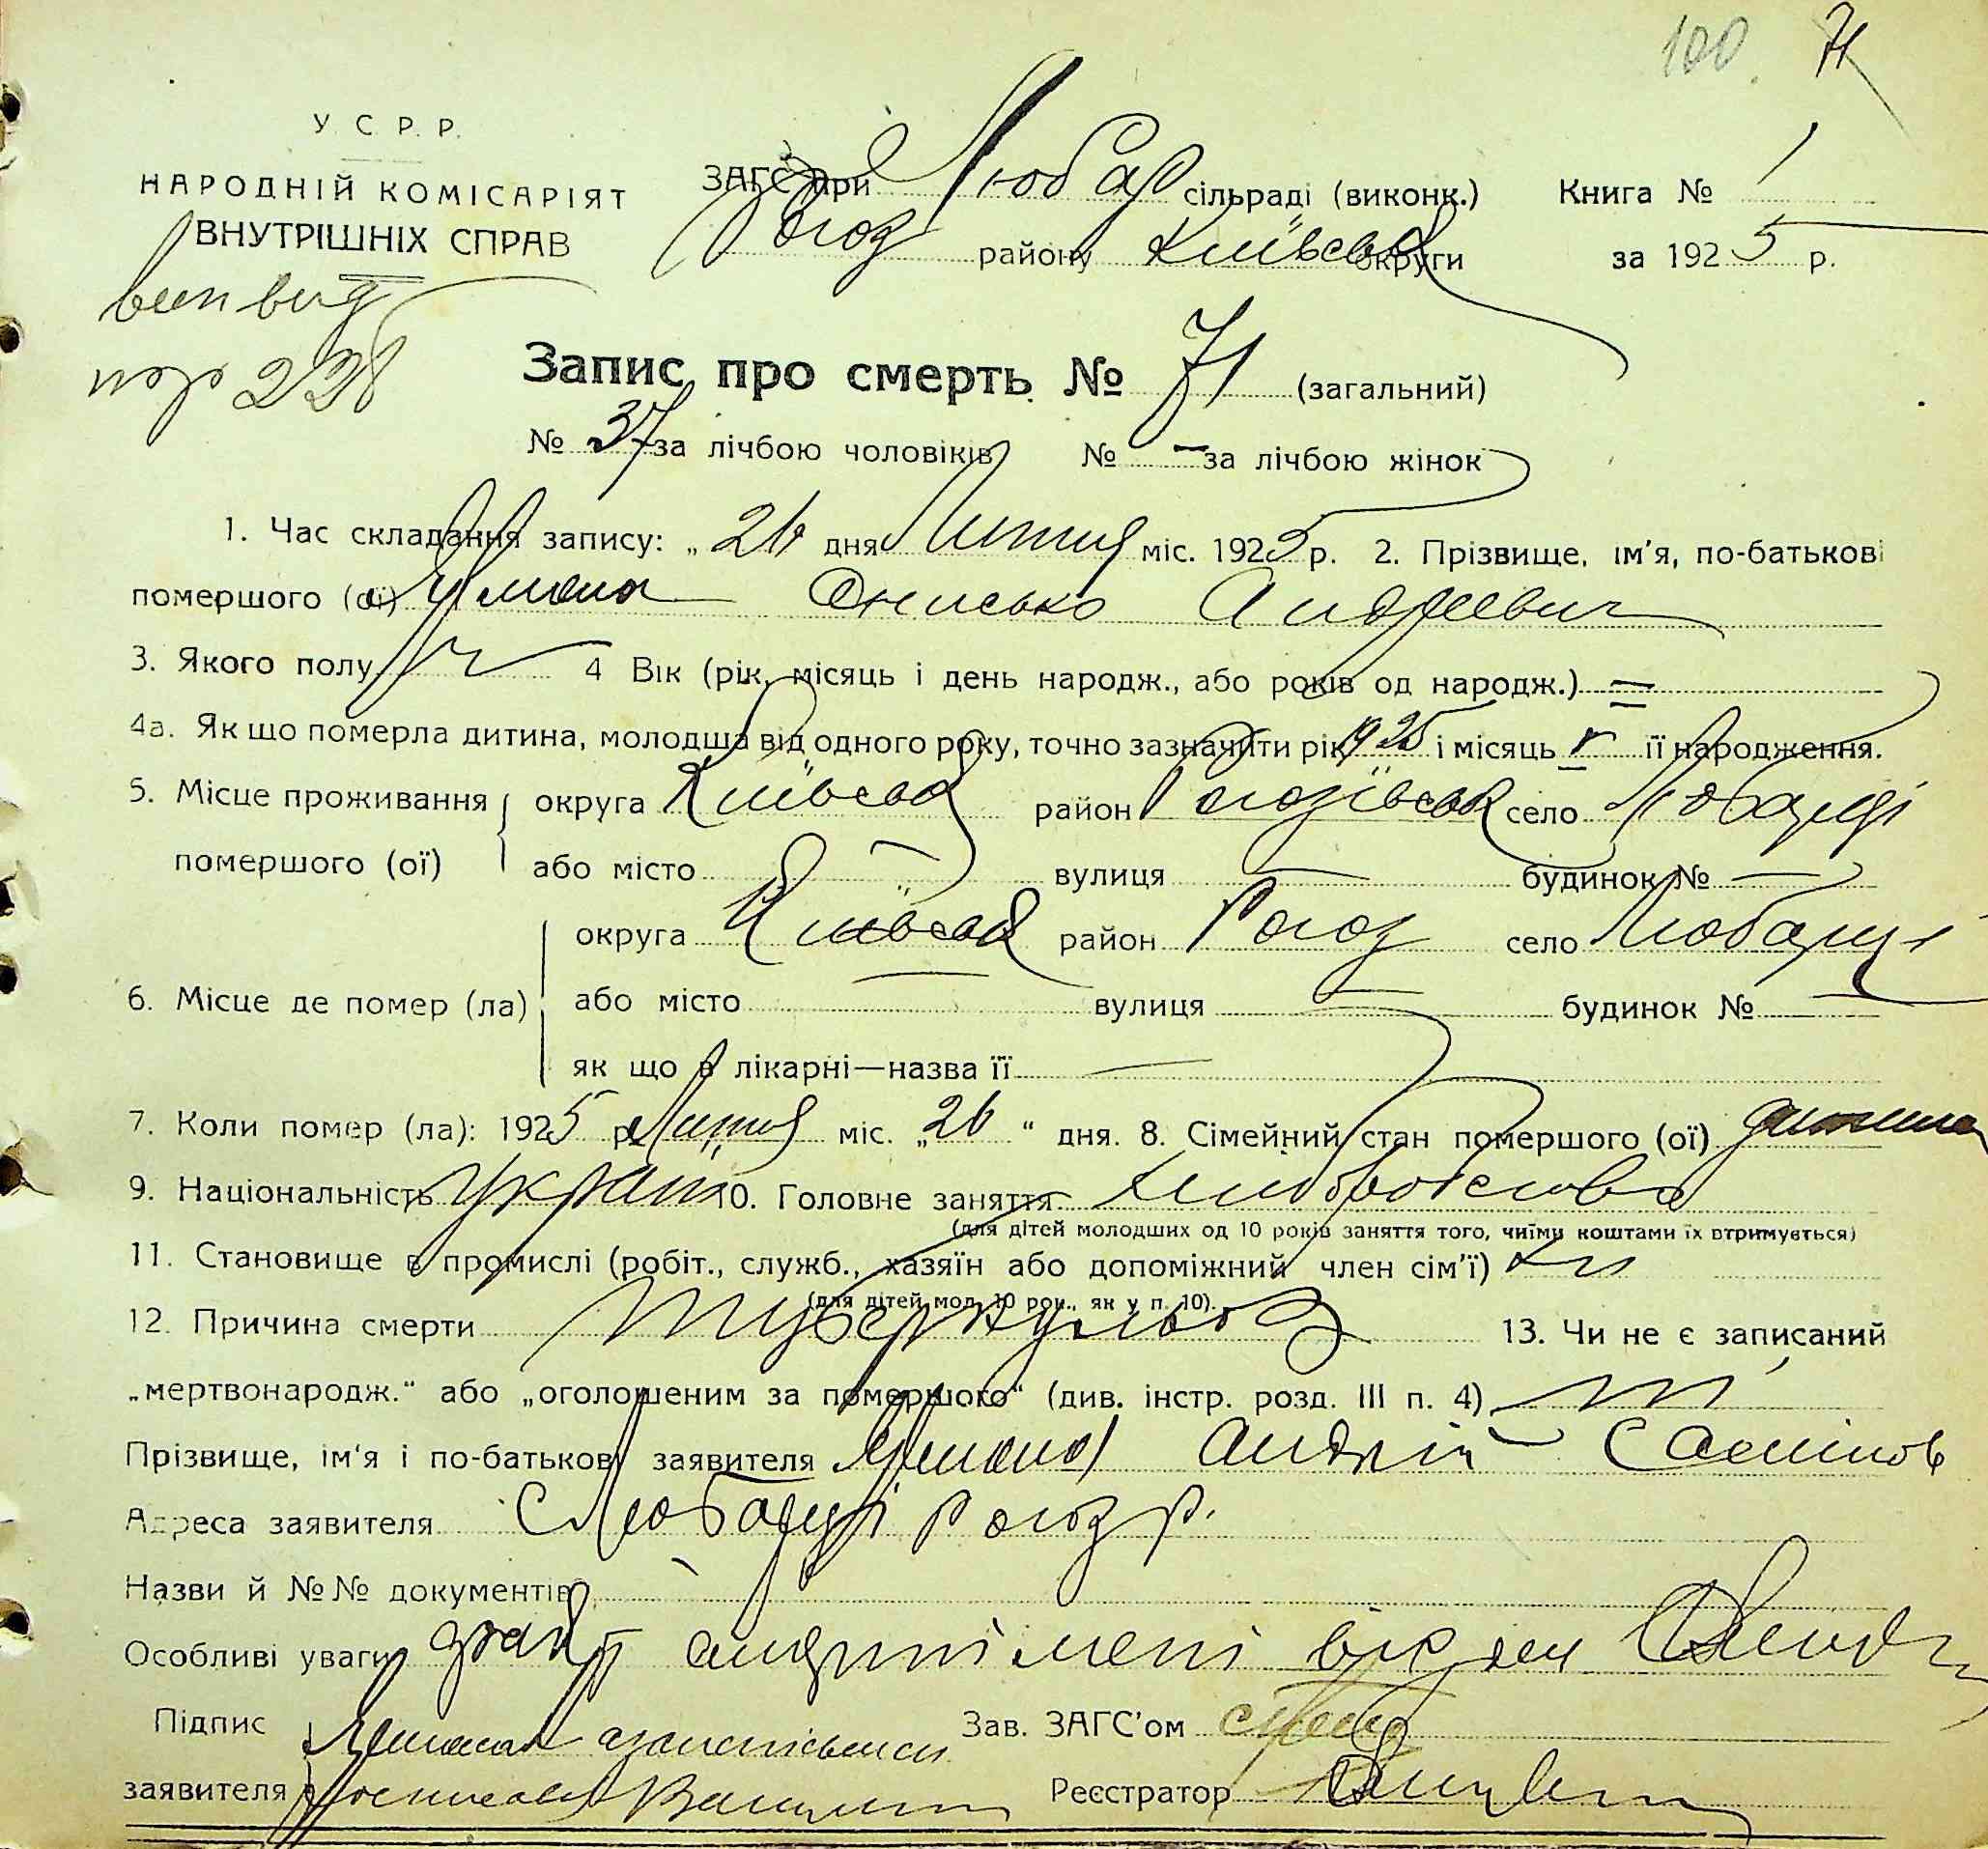 100 71
У. С. Р. Р.
НАРОДНІЙ КОМІСАРІЯТ
ВНУТРІШНІХ СПРАВ
ЗАГС при Любар сільраді (виконк.) Книга № 1
Рогоз району Київська округи за 1925 р.
228
Запис про смерть № 71 (загальний)
№ 37 за лічбою чоловіків № — за лічбою жінок
1. Час складання запису: „26 дня Липня міс. 1925 р. 2. Прізвище, ім'я, по-батькові
помершого (ої) Онисько Андреевич
3. Якого полу ч 4 Вік (рік, місяць і день народж., або років од народж.) =
4а. Як що померла дитина, молодша від одного року, точно зазначити рік 1925 і місяць її народження.
5. Місце проживання округа Київська район Рогозівськ село Любарці
помершого (ої) або місто — вулиця — будинок № —
округа Київська район Рогоз село Любарці
6. Місце де помер (ла) або місто вулиця — будинок № —
як що в лікарні—назва її —
7. Коли помер (ла): 1925 р. Липня міс. „26“ дня. 8. Сімейний стан помершого (ої) дитина
9. Національність україн 10. Головне заняття хліборобство
(для дітей молодших од 10 років заняття того, чиїми коштами їх втримується)
11. Становище в промислі (робіт., служб., хазяїн або допоміжний член сім'ї)
(для дітей мол. 10 рок., як у п. 10).
12. Причина смерти туберкульоз 13. Чи не є записаний
„мертвонародж.“ або „оголошеним за помершого“ (див. інстр. розд. III п. 4) ні
Прізвище, ім'я і по-батькові заявителя Андрій
Адреса заявителя С Любарці Рогоз р.
Назви й №№ документів
Особливі уваги
Підпис Зав. ЗАГС'ом
заявителя Реєстратор